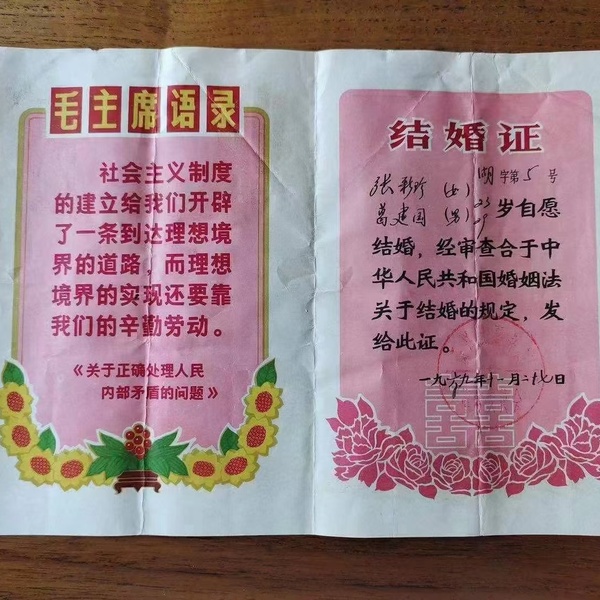 毛主席语录
社会主义制度
的建立给我们开辟
了一条到达理想境
界的道路，而理想
境界的实现还要靠
我们的辛勤劳动。
《关于正确处理人民
内部矛盾的问题》
结婚证
湖字第5号
张彩珍(女)
葛建国(男)岁自愿
结婚，经审查合于中
华人民共和国婚姻法
关于结婚的规定，发
给此证。
一九六九年十一月二十七日
囍